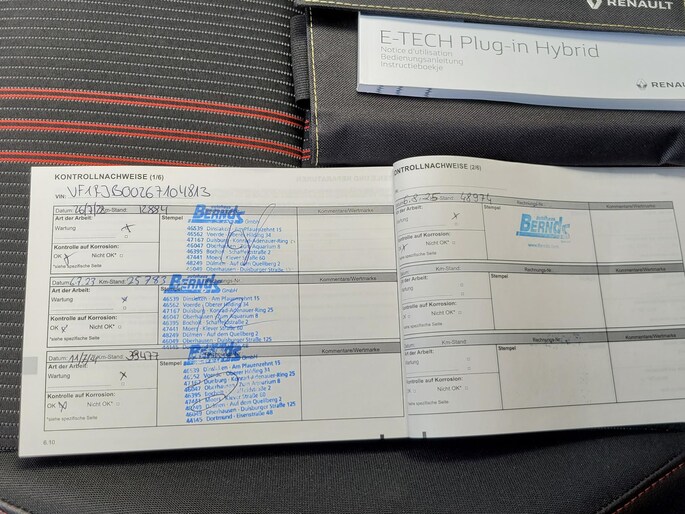 RENAULT
E-TECH Plug-in Hybrid
Notice d'utilisation
Bedienungsanleitung
Instructieboekje
RENAU
KONTROLLNACHWEISE (1/6)
VIN: VF1RJB00267104813
Datum: Km-Stand: 12884 Stempel Kommentare/Vertmarke
Art der Arbeit: BERNDS
Wartung x
46539 Dinslaken - Am Pfauenzehnt 15
46562 Voerde - Oberer Hilding 34
47167 Duisburg - Konrad-Adenauer-Ring
46047 Oberhausen - Zum Aquarium 8
46395 Bocholt - Schaffeldstraße 2
47441 Moers - Klever Straße 60
48249 Dülmen - Auf dem Quellberg 2
46049 Oberhausen - Duisburger Straße
Kontrolle auf Korrosion:
OK x Nicht OK*
*siehe spezifische Seite
Datum: 6.7.23 Km-Stand: 25783 Stempel Kommentare/Vertmarke
Art der Arbeit: BERNDS GmbH
Wartung x
46539 Dinslaken - Am Pfauenzehnt 15
46562 Voerde - Oberer Hilding 34
47167 Duisburg - Konrad-Adenauer-Ring 25
46047 Oberhausen - Zum Aquarium 8
46395 Bocholt - Schaffeldstraße 2
47441 Moers - Klever Straße 60
48249 Dülmen - Auf dem Quellberg 2
46049 Oberhausen - Duisburger Straße 125
Kontrolle auf Korrosion:
OK Nicht OK*
*siehe spezifische Seite
Datum: 11/7/24 Km-Stand: 39477 Kommentare/Vertmarke
Art der Arbeit: BERNDS GmbH
Wartung x
46539 Dinslaken - Am Pfauenzehnt 15
46562 Voerde - Oberer Hilding 34
47167 Duisburg - Konrad-Adenauer-Ring 25
46047 Oberhausen - Zum Aquarium 8
46395 Bocholt
47441 Moers - Klever Straße 60
48249 Dülmen - Auf dem Quellberg 2
46049 Oberhausen - Duisburger Straße 125
44145 Dortmund - Eisenstraße 48
Kontrolle auf Korrosion:
OK x Nicht OK*
*siehe spezifische Seite
6.10
KONTROLLNACHWEISE (2/6)
48974 Rechnungs-Nr.: Kommentare/Vertmarke
Art der Arbeit:
Wartung x BERNDS
Kontrolle auf Korrosion:
Nicht OK*
*siehe spezifische Seite
Datum: Km-Stand: Rechnungs-Nr.: Kommentare/Vertmarke
Art der Arbeit:
Wartung
Kontrolle auf Korrosion:
OK Nicht OK*
*siehe spezifische Seite
Datum: Km-Stand: Rechnungs-Nr.: Kommentare/Vertmarke
Art der Arbeit:
Wartung
Kontrolle auf Korrosion:
OK Nicht OK*
*siehe spezifische Seite